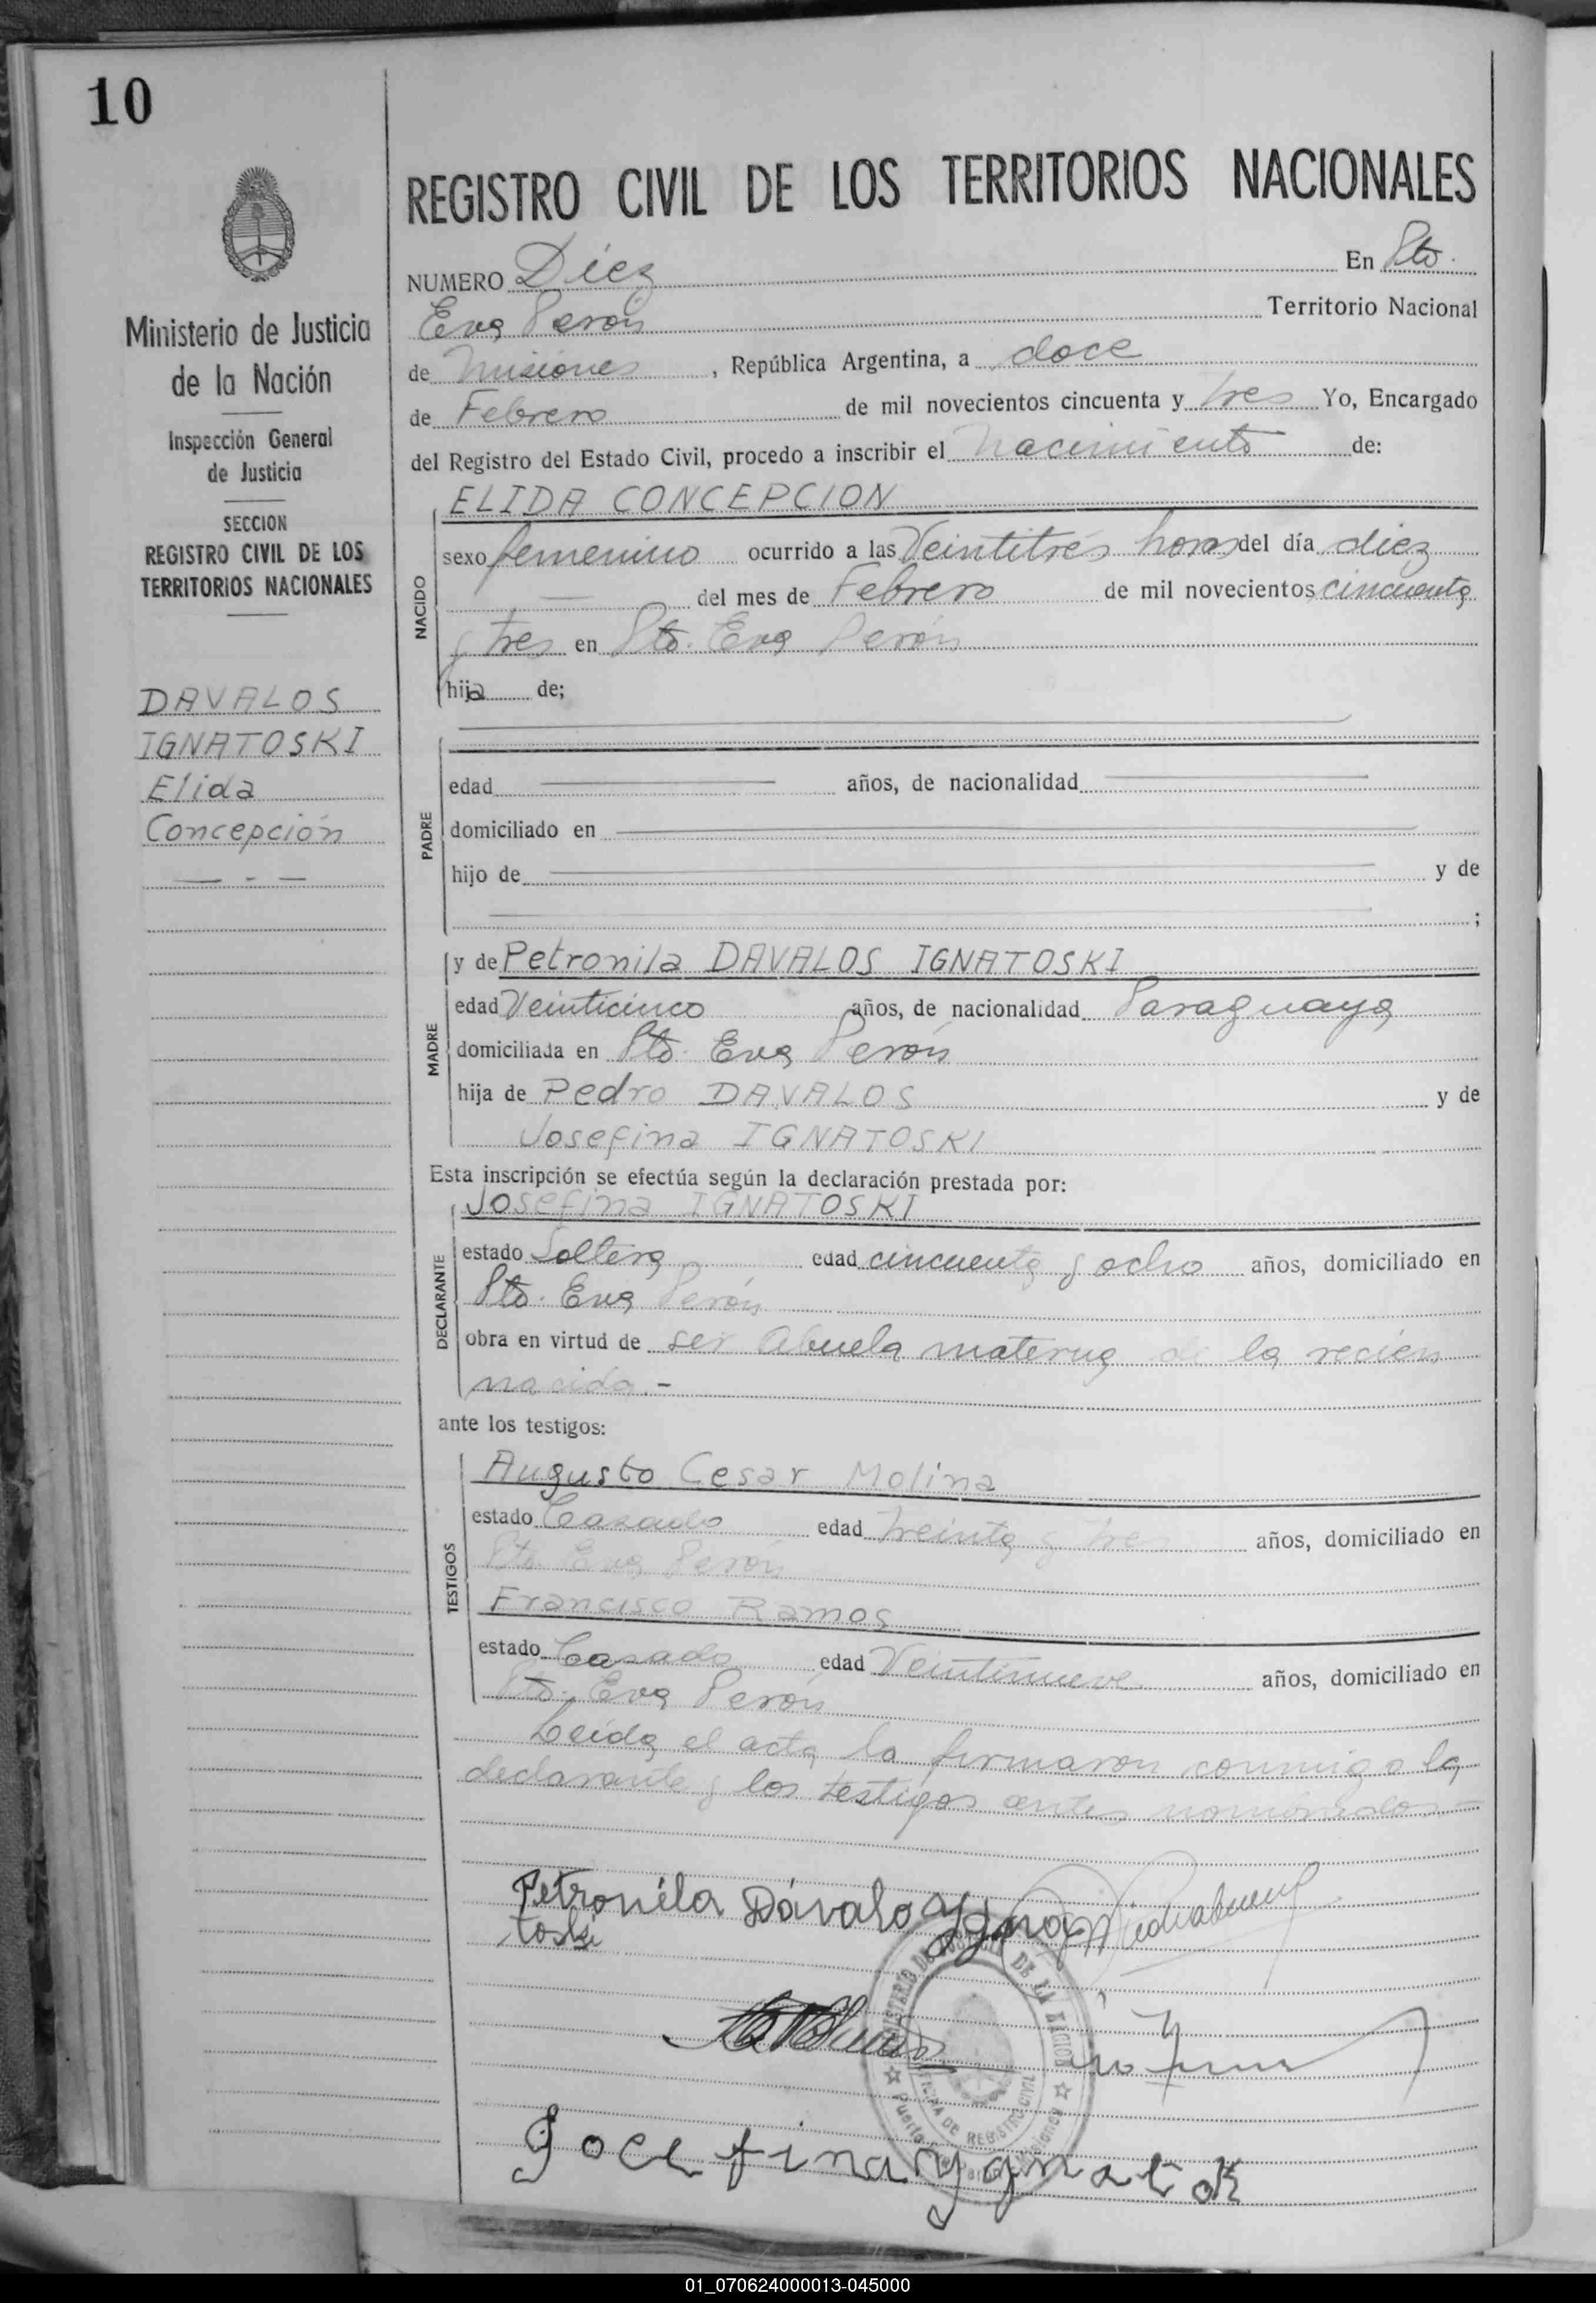 10
Ministerio de Justicia
de la Nación
Inspección General
de Justicia
SECCION
REGISTRO CIVIL DE LOS
TERRITORIOS NACIONALES
DAVALOS
IGNATOSKI
Elida
Concepción
REGISTRO CIVIL DE LOS TERRITORIOS NACIONALES
NUMERO Diez En Pto.
Eva Perón Territorio Nacional
de Misiones, República Argentina, a doce
de Febrero de mil novecientos cincuenta y tres Yo, Encargado
del Registro del Estado Civil, procedo a inscribir el nacimiento de:
NACIDO
ELIDA CONCEPCION
sexo femenino ocurrido a las Veintitrés horas del día diez
del mes de Febrero de mil novecientos cincuenta
y tres en Pto. Eva Perón
hija de;
PADRE
edad años, de nacionalidad
domiciliado en
hijo de y de
;
MADRE
y de Petronila DAVALOS IGNATOSKI
edad Veinticinco años, de nacionalidad Paraguaya
domiciliada en Pto. Eva Perón
hija de Pedro DAVALOS y de
Josefina IGNATOSKI
Esta inscripción se efectúa según la declaración prestada por:
DECLARANTE
Josefina IGNATOSKI
estado Soltera edad cincuenta y ocho años, domiciliado en
Pto. Eva Perón
obra en virtud de ser Abuela materna de la recién
nacida.-
ante los testigos:
TESTIGOS
Augusto Cesar Molina
estado Casado edad treinta y tres años, domiciliado en
Pto. Eva Perón
Francisco Ramos
estado Casado edad Veintinueve años, domiciliado en
Pto. Eva Perón
Leída el acta la firmaron conmigo la
declarante y los testigos antes nombrados.-
Petronila Dávalo Ygna
toski
MINISTERIO DE JUSTICIA DE LA NACION
OFICINA DE REGISTRO CIVIL
Josefina Ygnatok
01_070624000013-045000